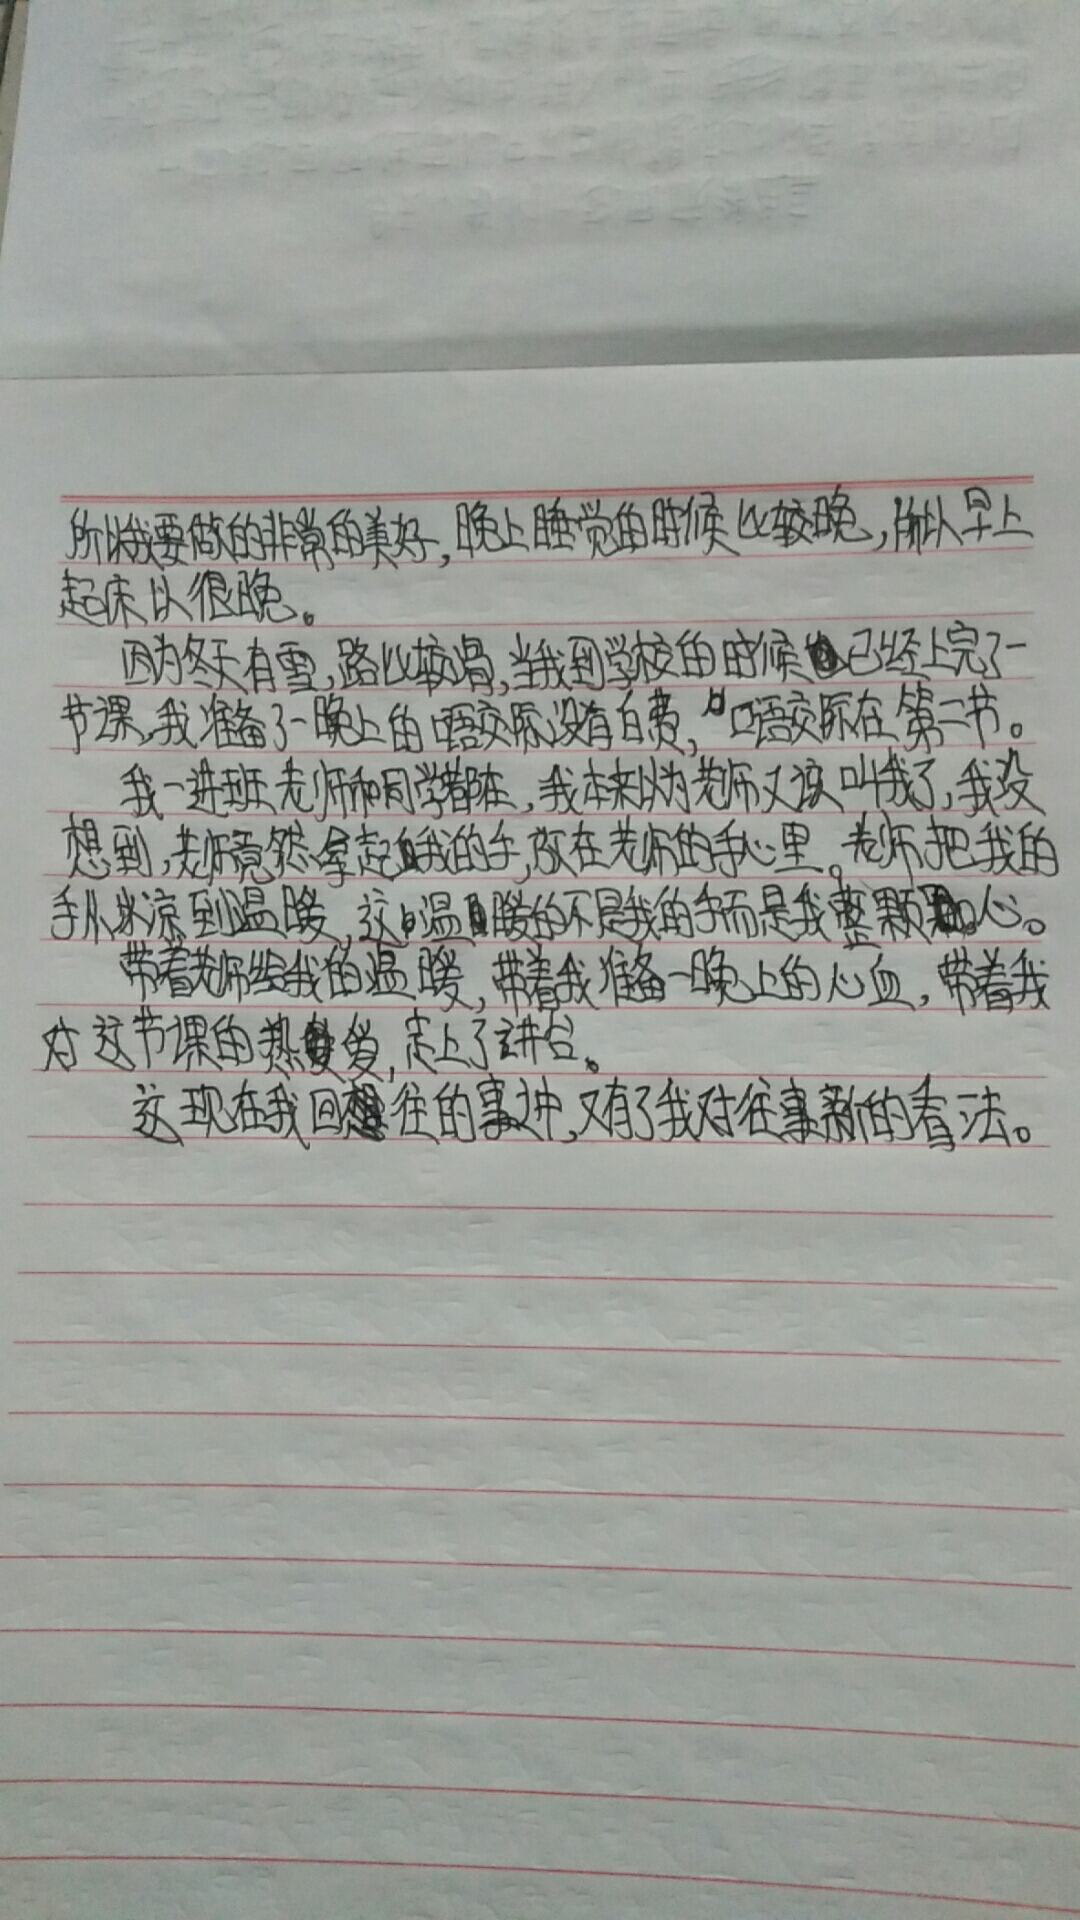 所以我要做的非常的美好,晚上睡觉的时候比较晚,所以早上
起床以很晚。
因为冬天有雪,路比较滑,当我到学校的时候已经上完了一
节课,我准备了一晚上的口语交际没有白费,口语交际在第二节。
我一进班老师和同学都在,我本来以为老师又该叫我了,我没
想到,老师竟然拿起我的手,放在老师的手心里。老师把我的
手从冰凉到温暖,这温暖的不是我的手而是我整颗心。
带着老师给我的温暖,带着我准备一晚上的心血,带着我
对这节课的热爱,走上了讲台。
这现在我回想往的事中,又有了我对往事新的看法。